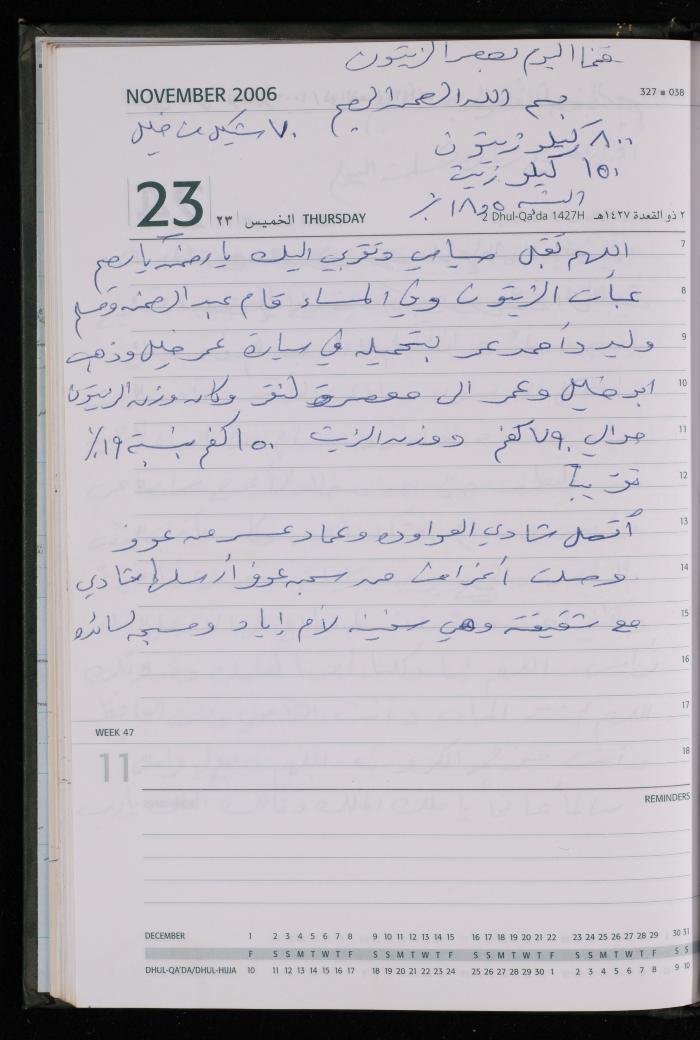 قمنا اليوم بعصر الزيتون
NOVEMBER 2006
327 ■ 038
بسم الله الرحمن الرحيم
٧٠ شيكل من خليل
٨٠٠ كيلو زيتون
١٥٠ كيلو زيت
النسبة ١٨٫٥ ٪
23 ٢٣ الخميس THURSDAY
2 Dhul-Qa'da 1427H ٢ ذو القعدة ١٤٢٧هـ
7 اللهم تقبل صيامي وتقربي اليك يا رحمن يا رحيم
8 عبأت الزيتون وفي المساء قام عبد الرحمن وقسم
9 وليد وأحمد عمر بتحميله في سيارة عمر خليل وذهب
10 ابو خليل وعمر الى معصرة لنقر وكان وزن الزيتون
11 حوالي ٧٩٠ كغم ووزن الزيت ١٥٠ كغم بنسبة ١٩٪
12 تقريباً
13 أتصل شادي العواوده وعماد عسر من عوفر
14 وصلت أغراض من سجن عوفر أرسلها شادي
15 مع شقيقه وهي سفينة لأم إياد ومسبحه لمائده
16
17
WEEK 47
18
11
REMINDERS
DECEMBER 1 2 3 4 5 6 7 8 9 10 11 12 13 14 15 16 17 18 19 20 21 22 23 24 25 26 27 28 29 30 31
F S S M T W T F S S M T W T F S S M T W T F S S M T W T F S S
DHUL-QA'DA/DHUL-HIJJA 10 11 12 13 14 15 16 17 18 19 20 21 22 23 24 25 26 27 28 29 30 1 2 3 4 5 6 7 8 9 10